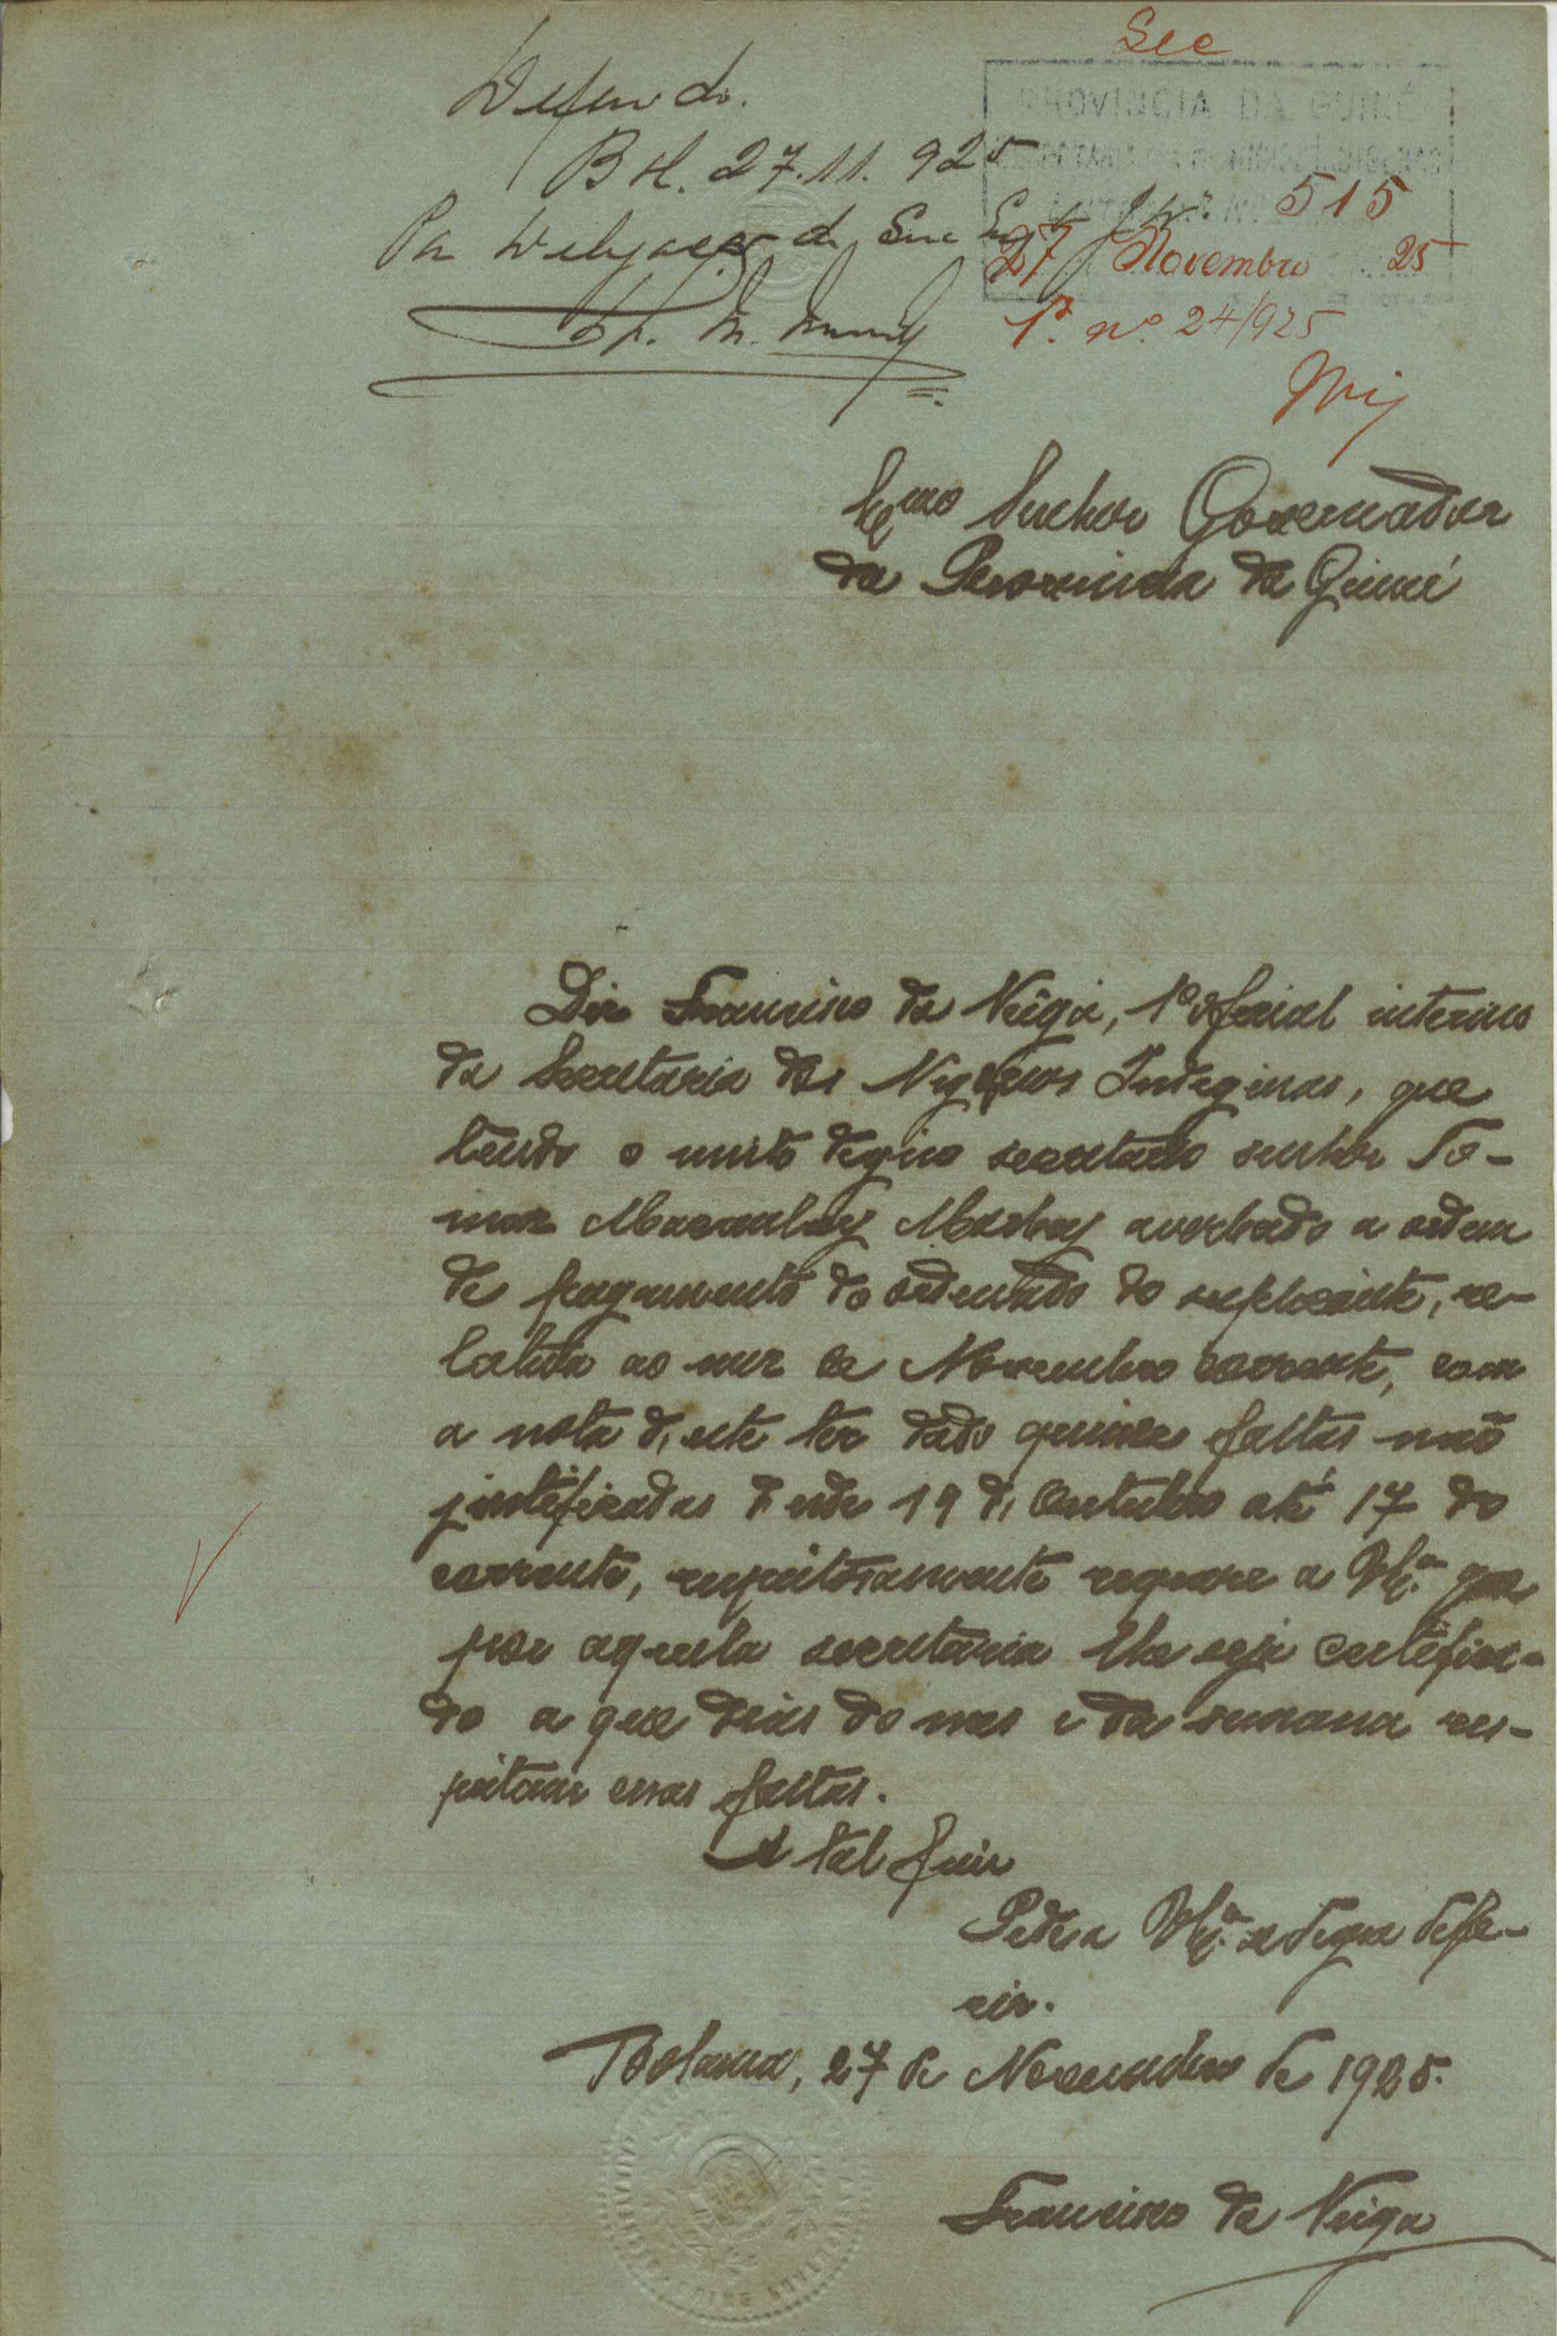 Sec
Deferido.
Bol. 27.11.925
Por Delegação de Sua Exª
PROVINCIA DA GUINÉ
Nº 515
27 Novembro 25
P. nº 24/925
Exmo Senhor Governador
da Provincia da Guiné
Diz Francisco da Veiga, 1º oficial interino
da Secretaria dos Negócios Indeginas, que
tendo o muito degino secretario senhor To-
maz Macaulay Mackay averbado a ordem
de pagamento do ordenado do suplicante, re-
lativa ao mez de Novembro corrente, com
a nota d'este ter dado quinze faltas não
justificadas desde 19 d'Outubro até 17 do
corrente, respeitosamente requere a V. Exª que
por aquela secretaria lhe seja certefica-
do a que dias do mes e da semana res-
peitam essas faltas.
A tal fim
Pede a V. Exª se degne defe-
rir.
Bolama, 27 de Novembro de 1925.
Francisco da Veiga